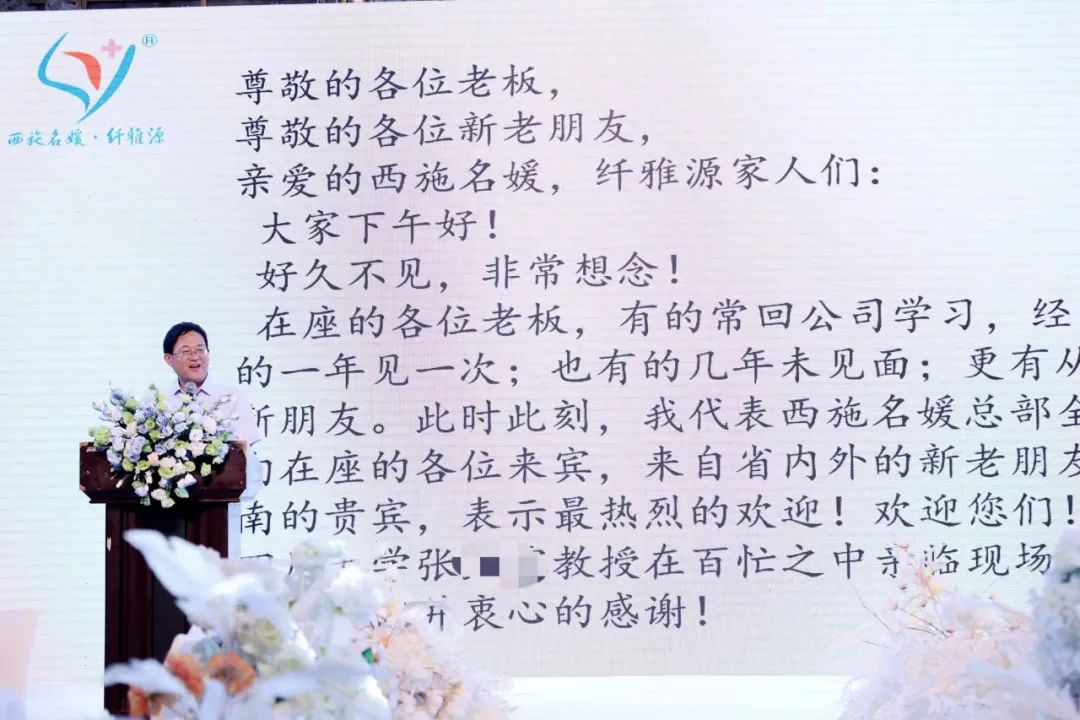 ®
西施名媛·纤雅源
尊敬的各位老板，
尊敬的各位新老朋友，
亲爱的西施名媛，纤雅源家人们：
大家下午好！
好久不见，非常想念！
在座的各位老板，有的常回公司学习，经
的一年见一次；也有的几年未见面；更有从
朋友。此时此刻，我代表西施名媛总部全
在座的各位来宾，来自省内外的新老朋友
南的贵宾，表示最热烈的欢迎！欢迎您们！
学张 教授在百忙之中亲临现场
衷心的感谢！